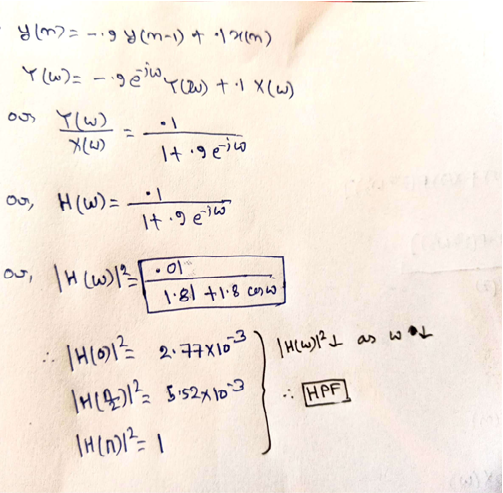 y(n) = -.9 y(n-1) + .1 x(n)
Y(ω) = -.9 e^{-jω} Y(ω) + .1 X(ω)
or, Y(ω)/X(ω) = .1 / (1 + .9 e^{-jω})
or, H(ω) = .1 / (1 + .9 e^{-jω})
or, |H(ω)|² = .01 / (1.81 + 1.8 cos ω)
∴ |H(0)|² = 2.77 × 10^{-3}
|H(ω)|² ↓ as ω ↓
|H(π/2)|² = 5.52 × 10^{-3}
∴ HPF
|H(π)|² = 1